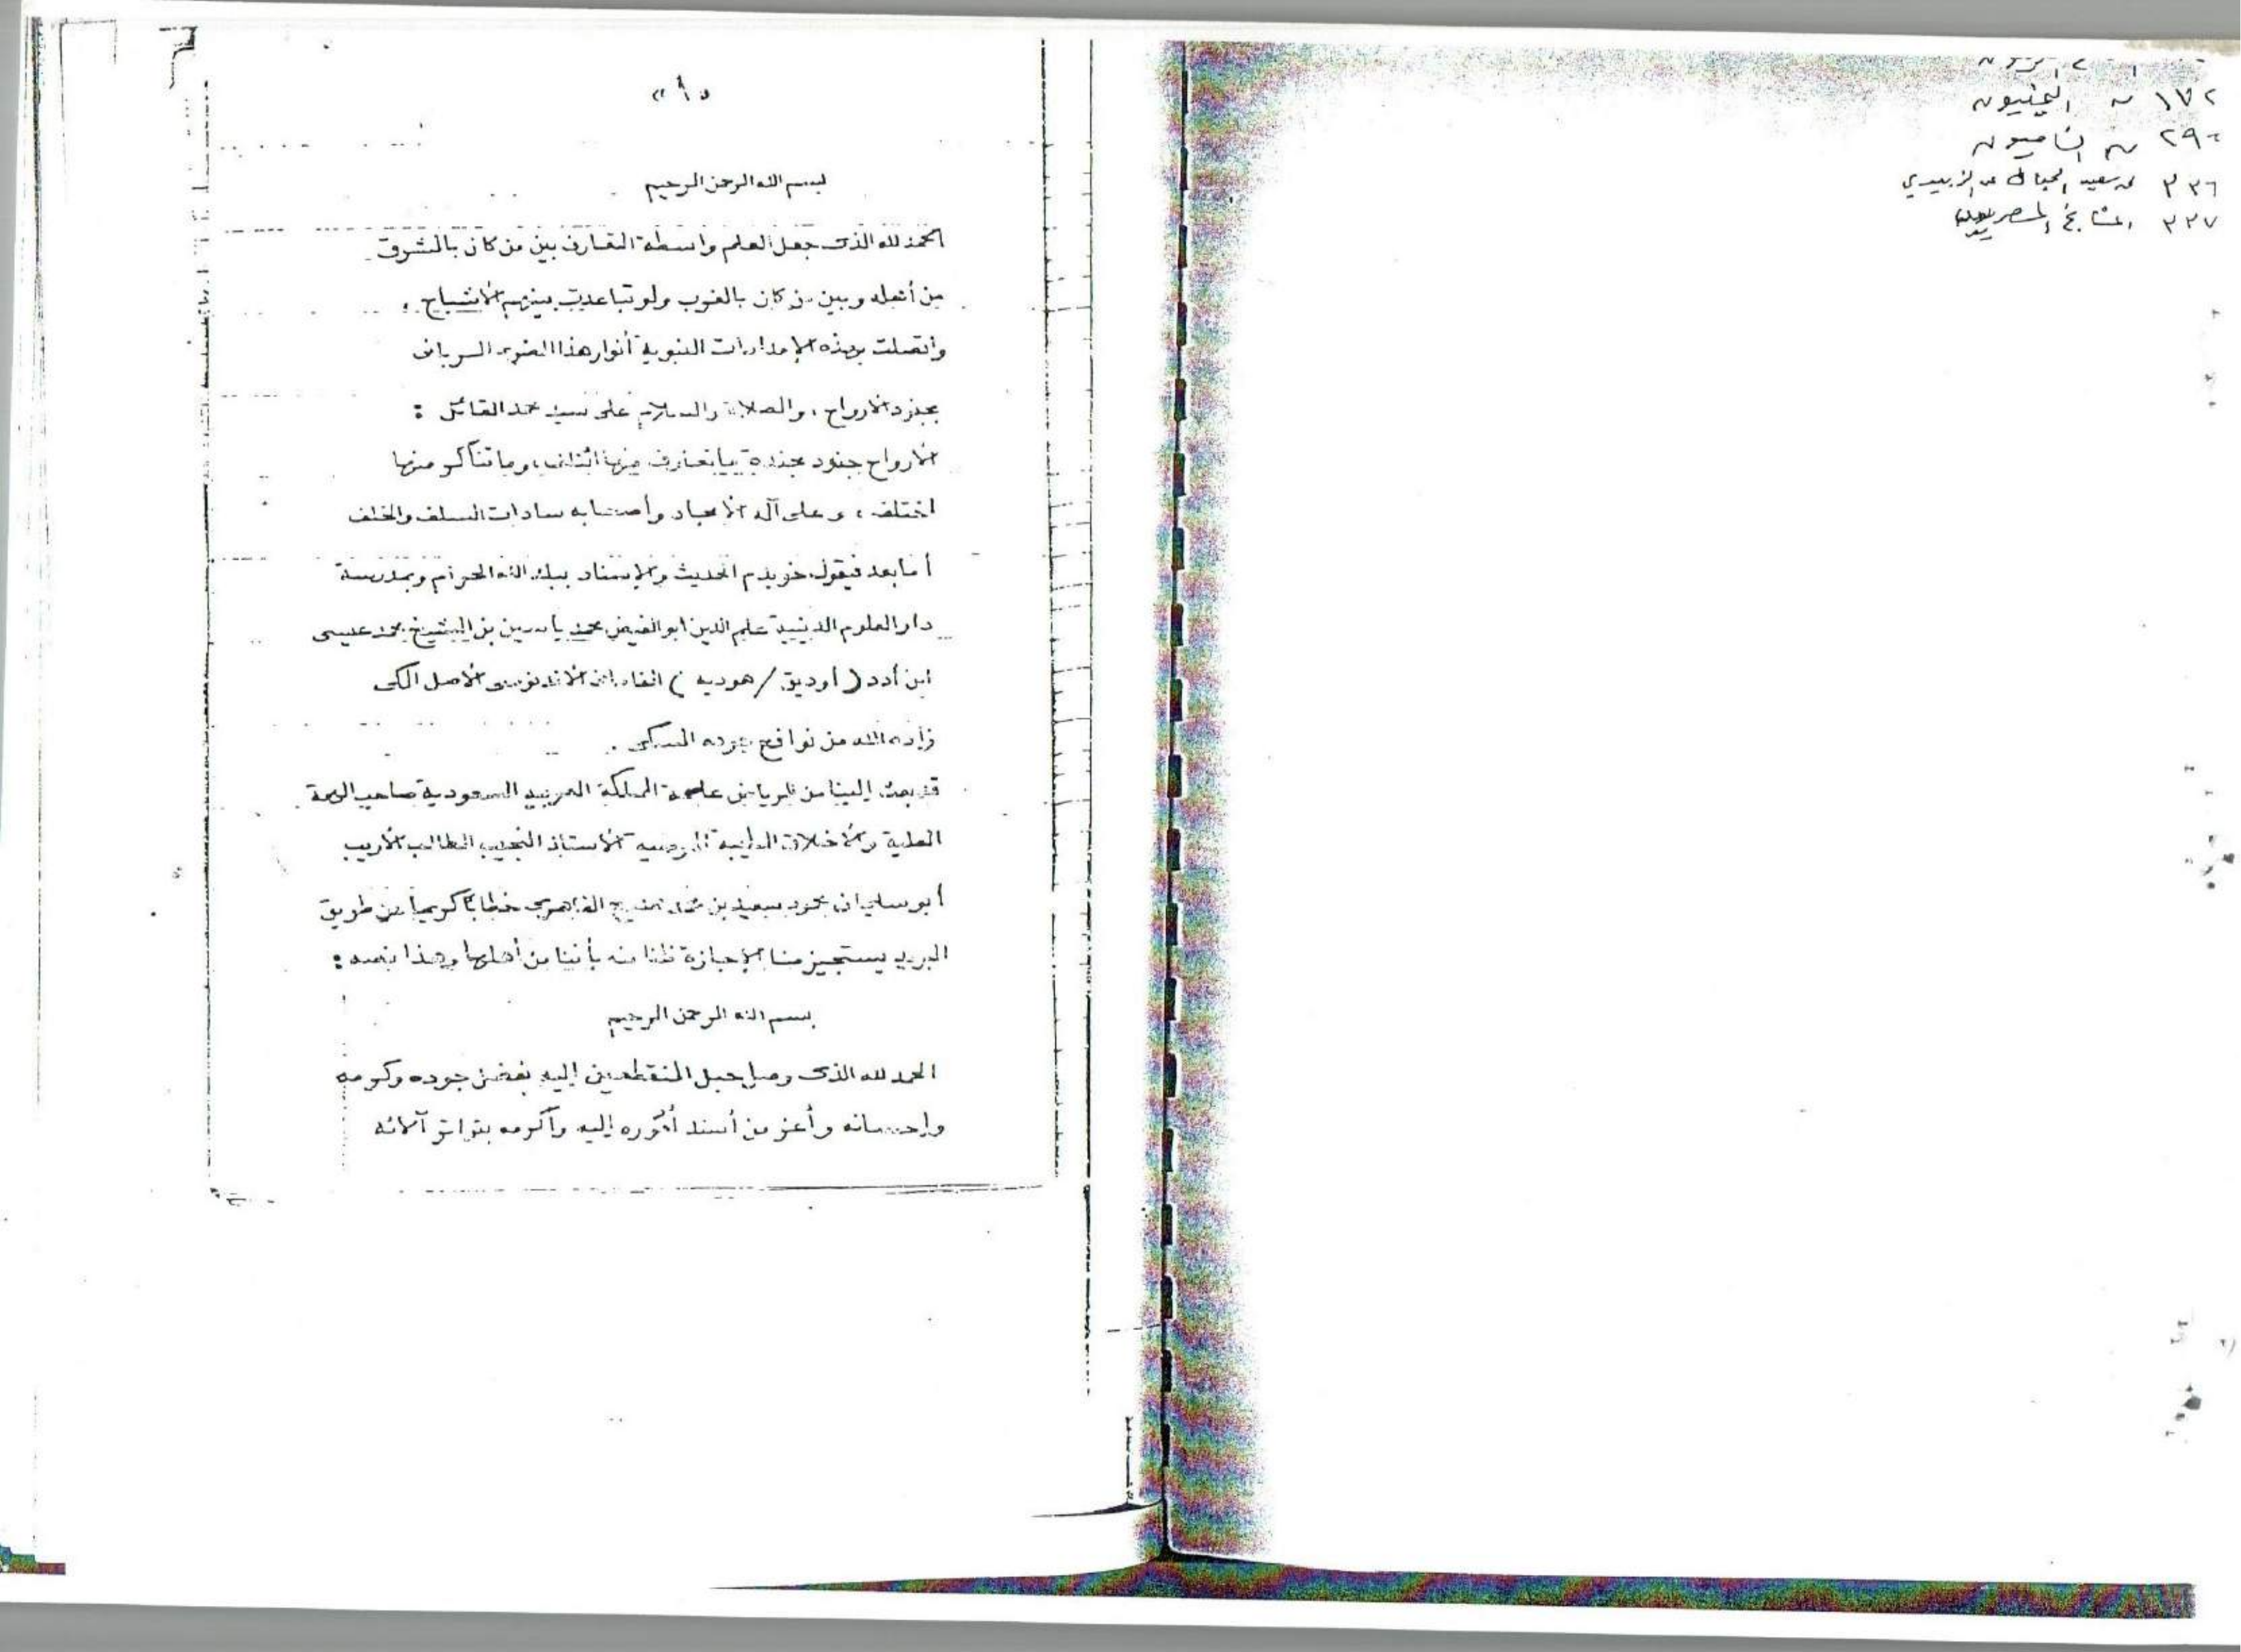 ١٧٢ اليمنيون
الشاميون
٣٣٦ سعيد الحبال عن الزبيدي
٣٣٧ المشايخ المصريون
«١»
بسم الله الرحمن الرحيم
الحمد لله الذى جعل العلم واسطة التعارف بين من كان بالمشرق
من أهله وبين من كان بالغرب ولو تباعدت بينهم الأشباح ،
واتصلت بهذه الإمدادات النبوية أنوار هذا
الأرواح ، والصلاة والسلام على سيد محمد القائل :
الأرواح جنود مجندة ما تعارف منها ائتلف ، وما تناكر منها
اختلف ، وعلى آله الأمجاد وأصحابه سادات السلف والخلف
أما بعد فيقول خويدم الحديث والإسناد ببلد الله الحرام وبمدرسة
دار العلوم الدينية علم الدين ابو الفيض محمد ياسين بن الشيخ محمد عيسى
ابن أدد ( أوديق / هوديه ) الفادانى الأندونيسى الأصل المكى
زاده الله من نوافح جوده المسكى .
قد بعث إلينا من الرياض عاصمة المملكة العربية السعودية صاحب الهمة
العلية والأخلاق الطيبة المرضية الأستاذ النجيب الطالب الأريب
أبو سليمان محمود سعيد بن محمد ممدوح القاهرى خطابا كريما من طريق
البريد يستجيز منا الإجازة ظنا منه بأننا من أهلها وهذا نصه :
بسم الله الرحمن الرحيم
الحمد لله الذى وصل حبل المنقطعين إليه بفضل جوده وكرمه
وإحسانه وأعز من أسند أموره إليه وأكرمه بتواتر آلائه